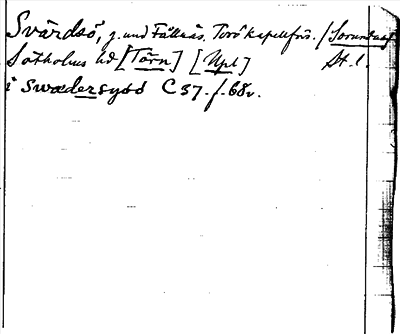 Svärdsö, g. und Fållnäs. Torö kapellförs. / Sorunda sn
Sotholms hd [Törn] [Upl] St. l.
i Swædersydd C 37. f. 68v.